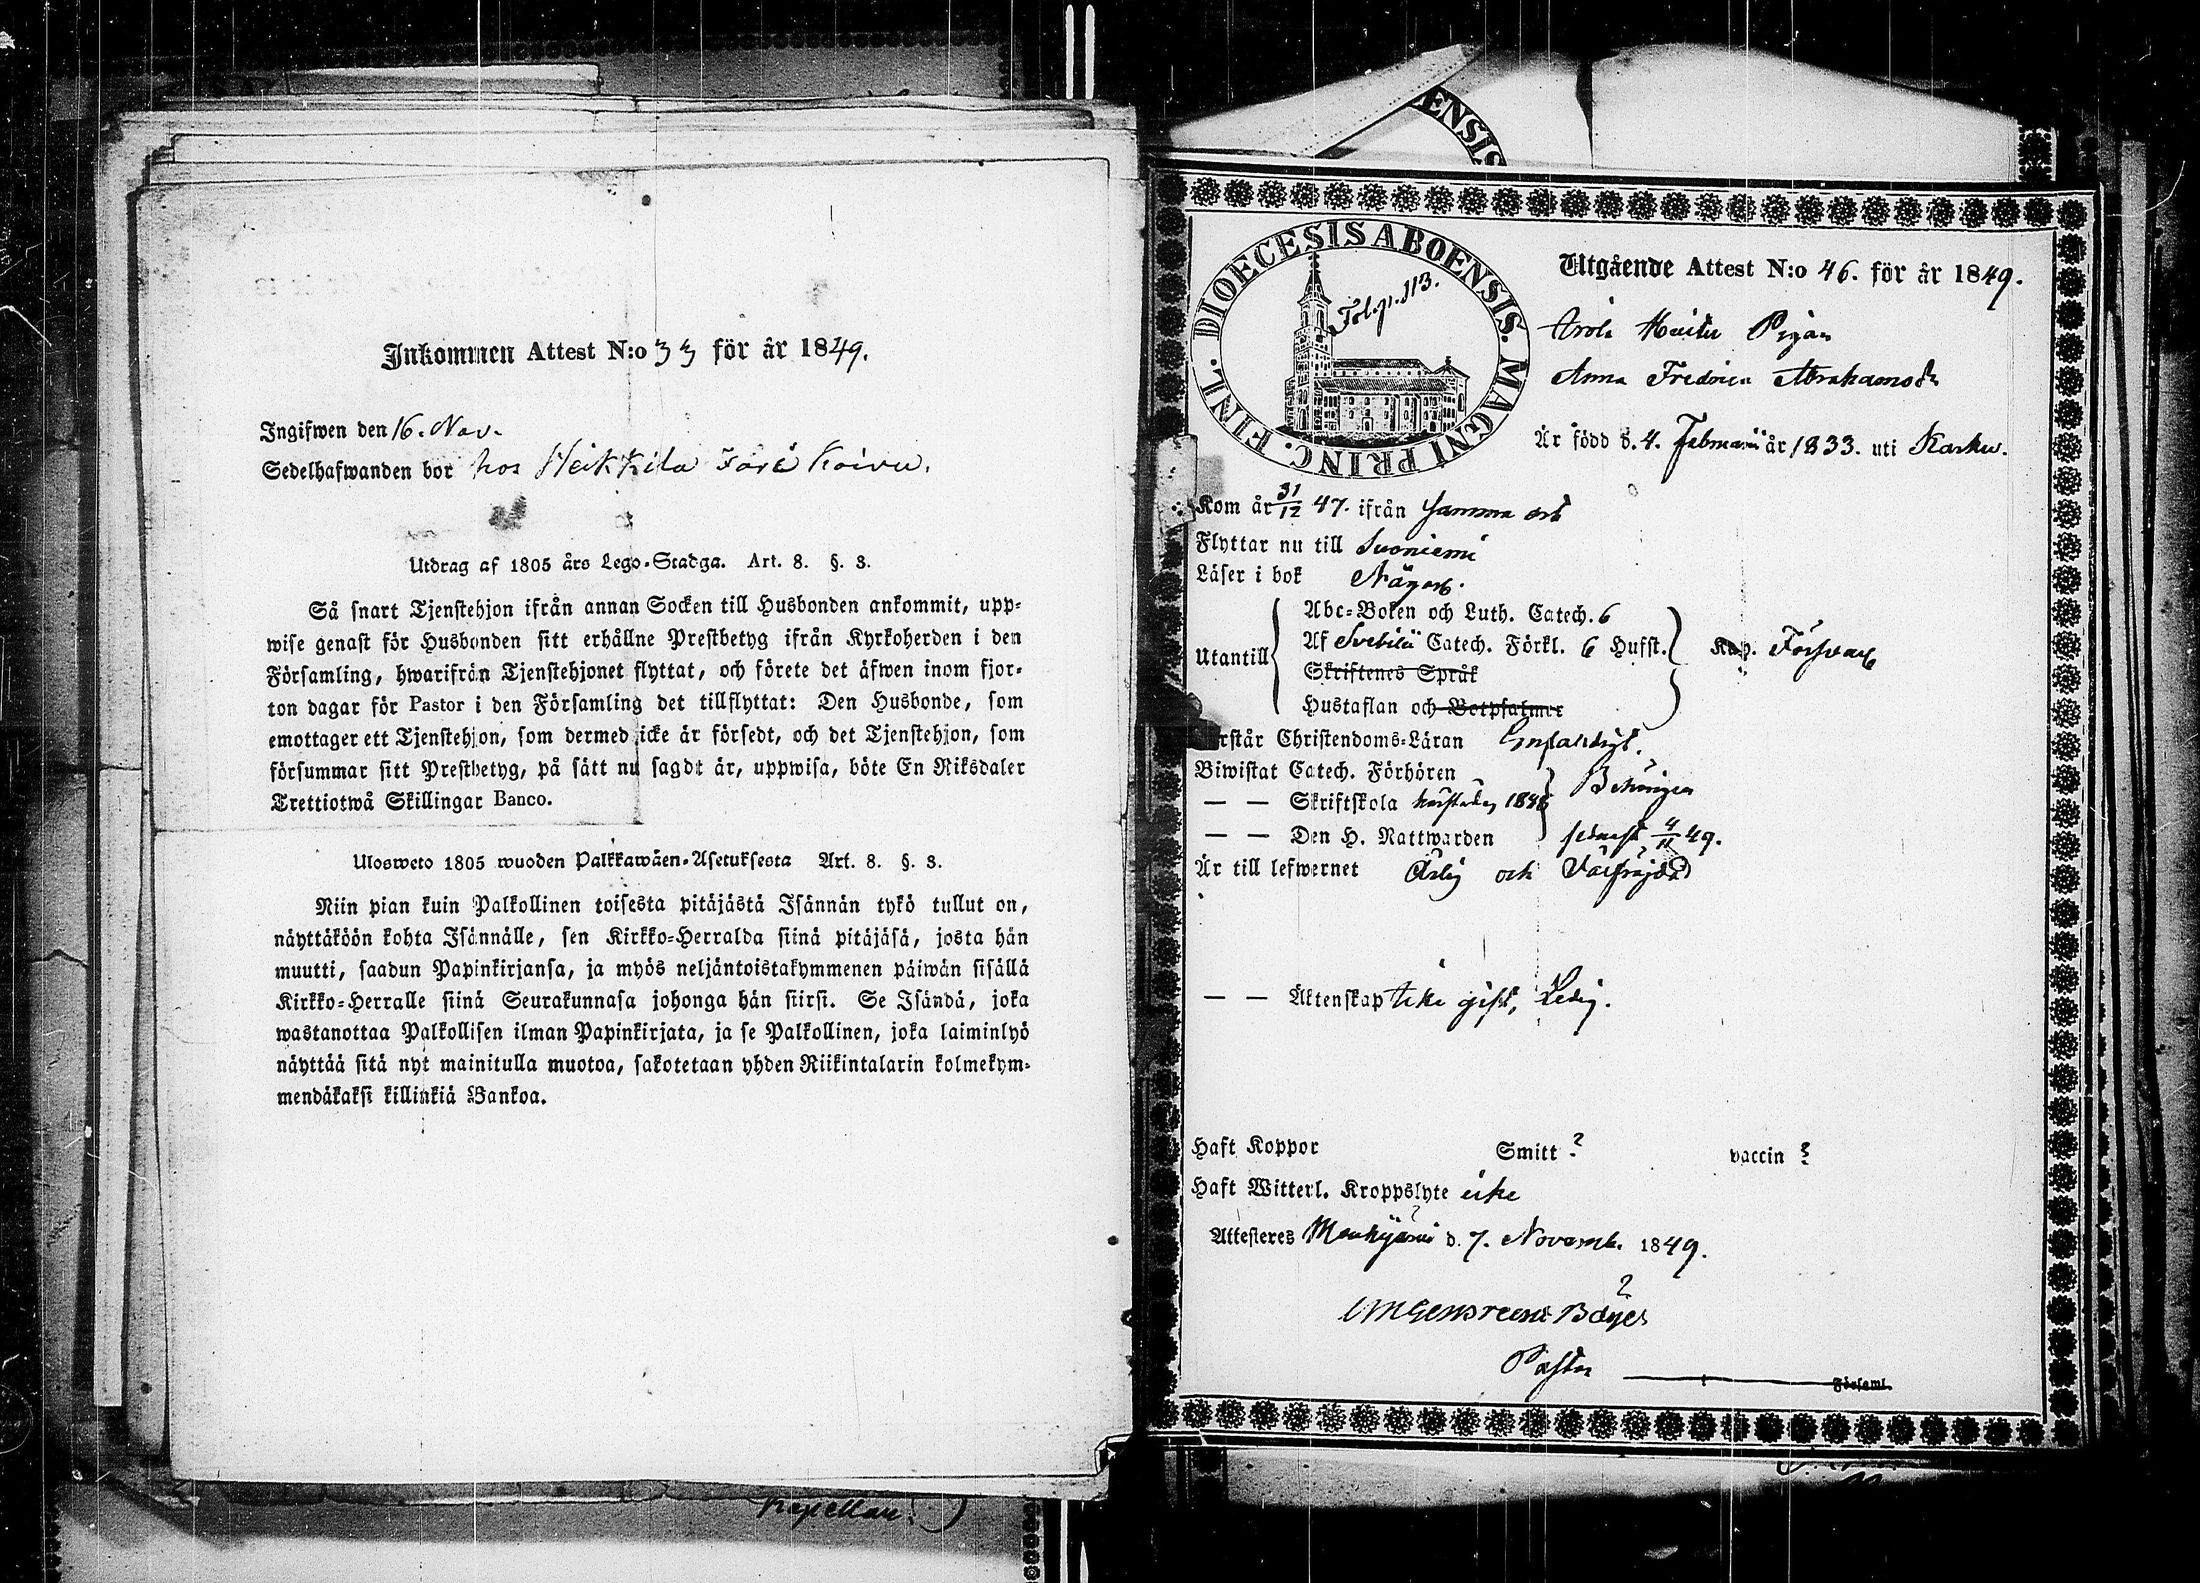 Inkommen Attest N:o 33 för år 1849.
Ingifwen den 16. Nov.
Sedelhafwanden bor hos Heikkilä Koivu.
Utdrag af 1805 års Lego-Stadga. Art. 8. §. 3.
Så snart Tjenstehjon ifrån annan Socken till Husbonden ankommit, upp-
wise genast för Husbonden sitt erhållne Prestbetyg ifrån Kyrkoherden i den
Församling, hwarifrån Tjenstehjonet flyttat, och förete det äfwen inom fjor-
ton dagar för Pastor i den Församling det tillflyttat: Den Husbonde, som
emottager ett Tjenstehjon, som dermed icke är försedt, och det Tjenstehjon, som
försummar sitt Prestbetyg, på sätt nu sagdt är, uppwisa, böte En Riksdaler
Trettiotwå Skillingar Banco.
Ulosweto 1805 wuoden Palkkawäen-Asetuksesta Art. 8. §. 3.
Niin pian kuin Palkollinen toisesta pitäjästä Isännän tykö tullut on,
näyttäköön kohta Isännälle, sen Kirkko-Herralda siinä pitäjäsä, josta hän
muutti, saadun Papinkirjansa, ja myös neljäntoistakymmenen päiwän sisällä
Kirkko-Herralle siinä Seurakunnasa johonga hän siirsi. Se Isändä, joka
wastanottaa Palkollisen ilman Papinkirjata, ja se Palkollinen, joka laiminlyö
näyttää sitä nyt mainitulla muotoa, sakotetaan yhden Riikintalarin kolmekym-
mendäkaksi killinkiä Bankoa.
Kapellan.
ENSIS
DIOECESIS ABOENSIS. MAGNI PRINC. FINL.
Fol. p. 113.
Utgående Attest N:o 46. för år 1849.
Pigan
Anna Fredrica Abrahamsdr
Är född d. 4. Februarii år 1833. uti Karku.
Kom år 31/12 47. ifrån samma ort
Flyttar nu till Suoniemi
Läser i bok Någorl.
Utantill
Abc-Boken och Luth. Catech. 6
Af Svebilii Catech. Förkl. 6 Hufst. Kap. Försvarl
Skriftenes Språk
Hustaflan och Botpsalmer
Förstår Christendoms-Läran Enfaldigt.
Biwistat Catech. Förhören Behörigen
— — Skriftskola
— — Den H. Nattwarden senast 4/11 49.
Är till lefwernet Ärlig och Välfräjdad
— — Äktenskap icke gift, Ledig.
Haft Koppor Smitt? vaccin?
Haft Witterl. Kroppslyte icke
Attesteres Mouhijärvi d. 7. Novemb. 1849.
Pastor
Församl.